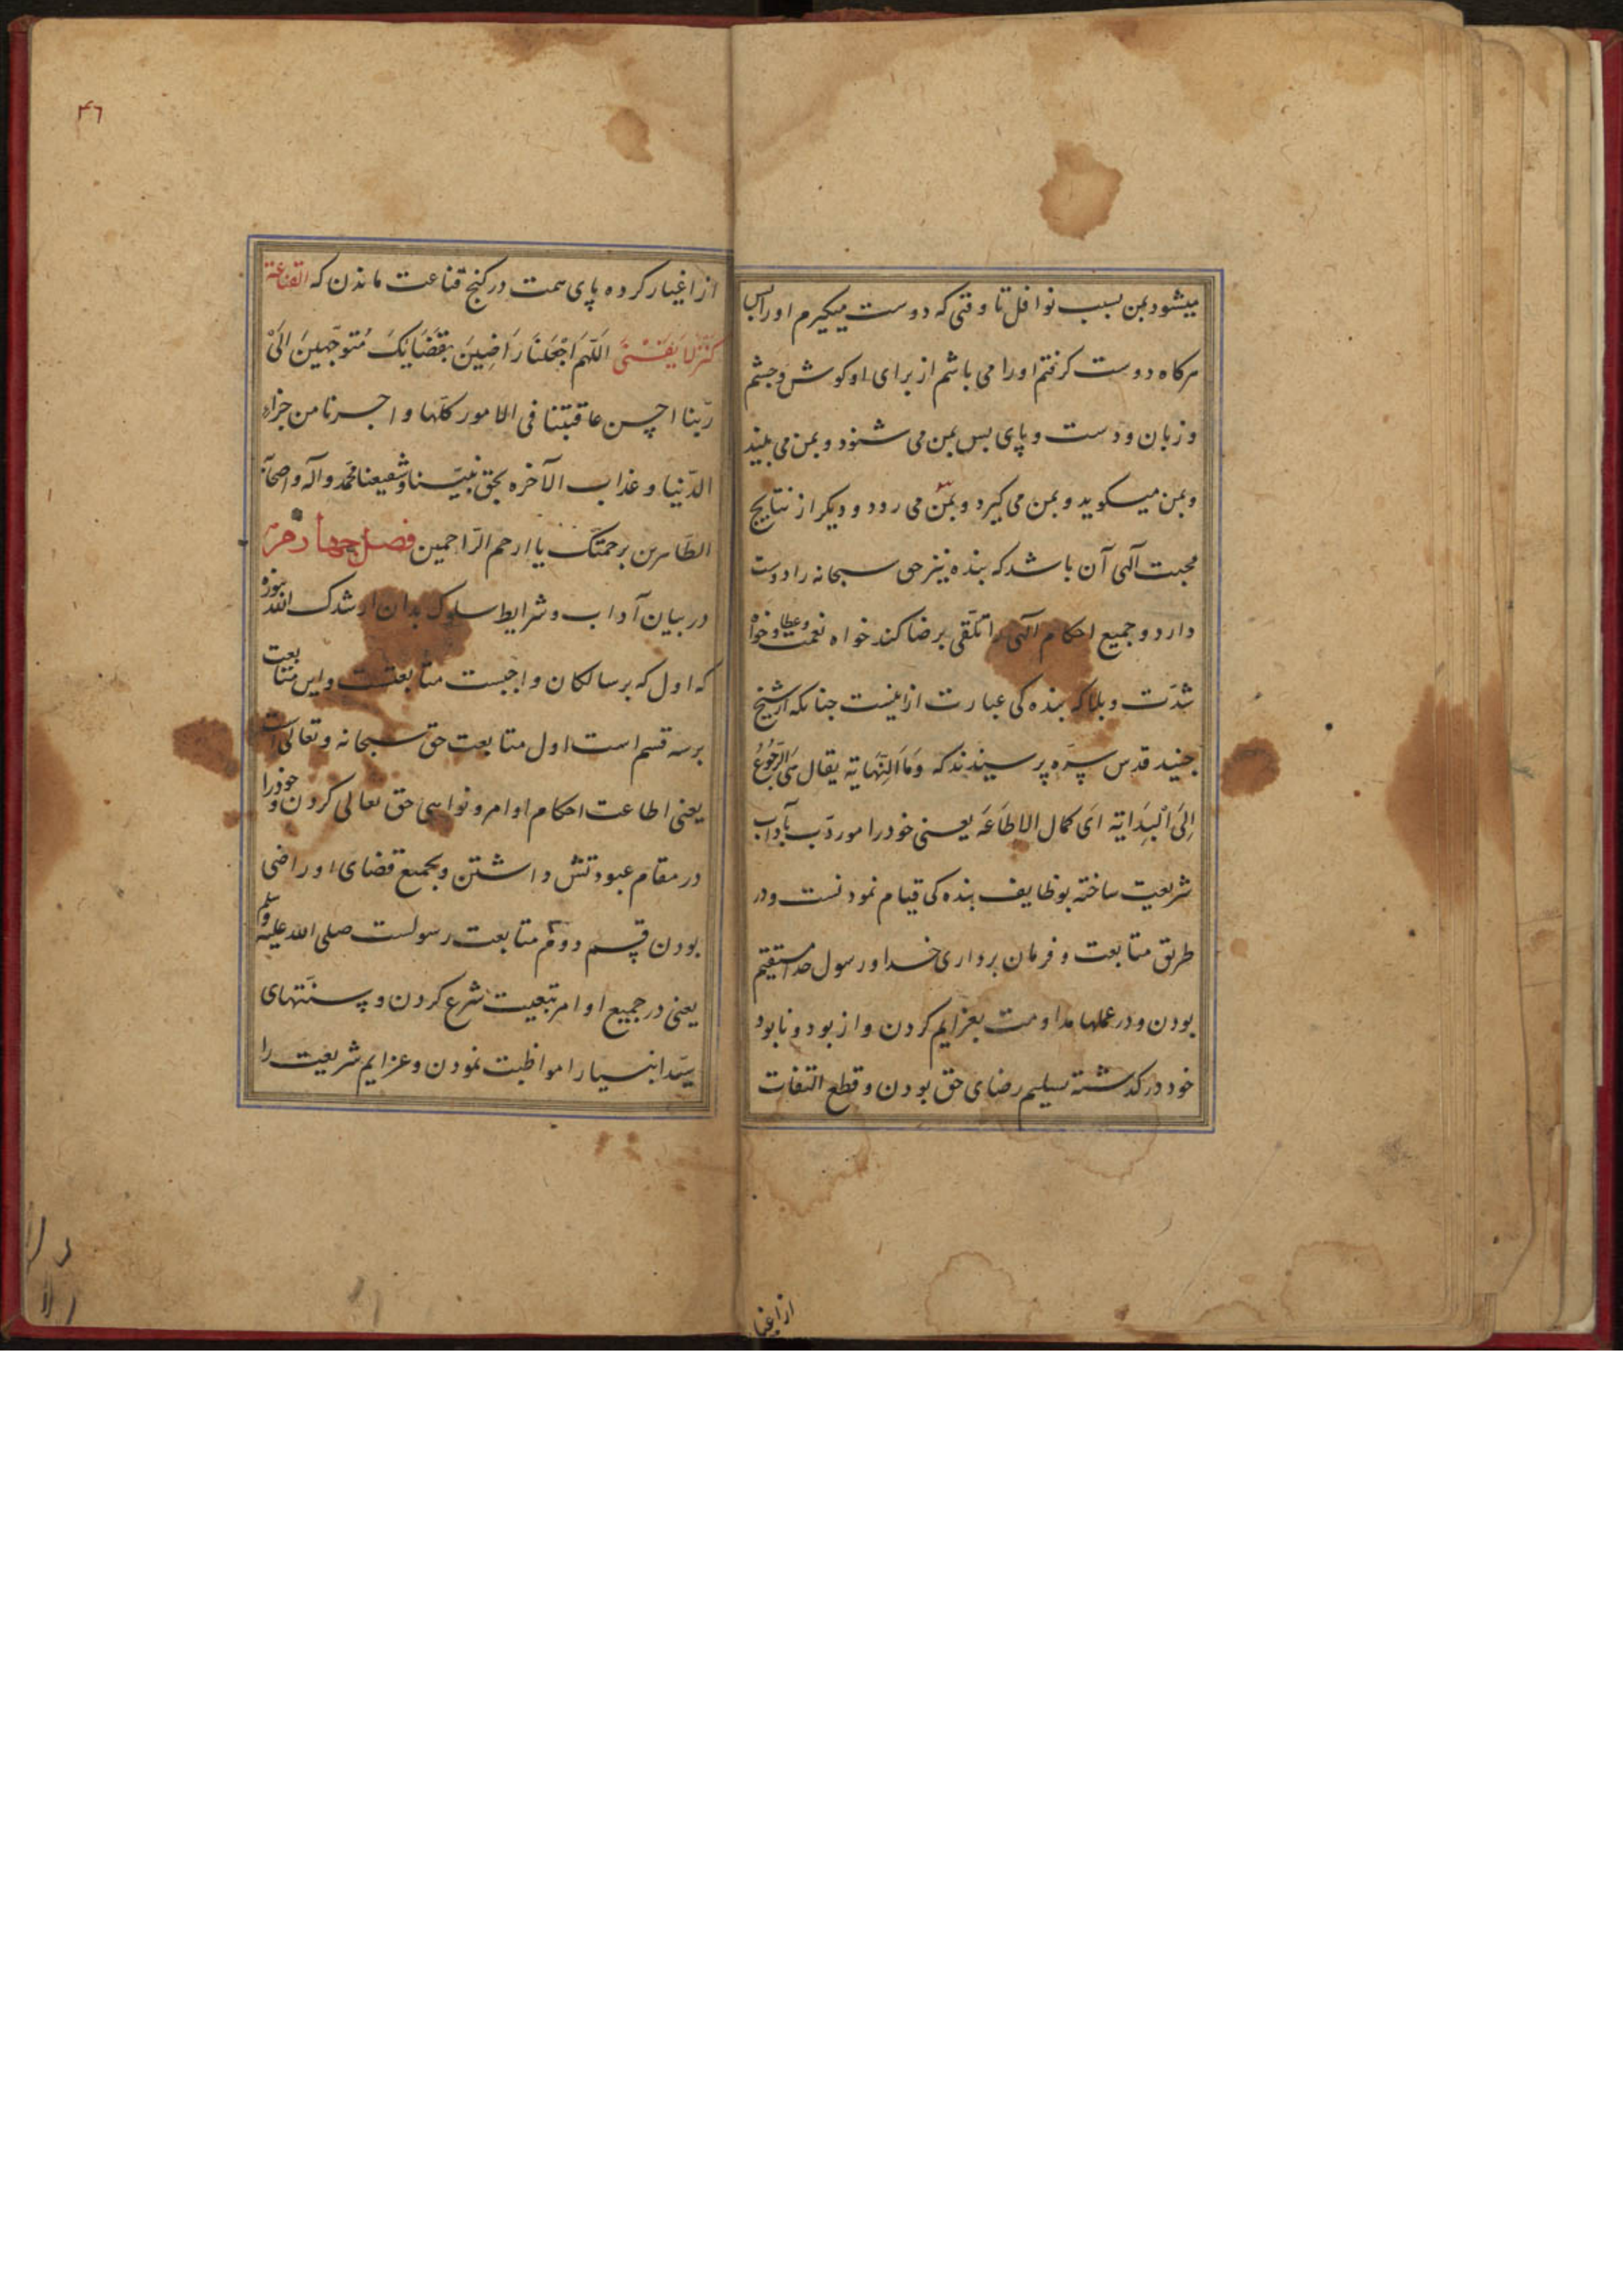 میشود بمن بسبب نوافل تا وقتی که دوست میکیرم او را بس
هرکاه دوست کرفتم او را می باشم از برای او کوش و جشم
و زبان و دست و پای بس بمن می شنود و بمن می بیند
و بمن میکوید و بمن می کیرد و بمن می رود و دیکر از نتایج
محبت آلهی آن باشد که بنده نیز حق سبحانه را دوست
دارد و جمیع احکام آلهی را تلقی برضا کند خواه نعمت و عطا و خواه
شدّت و بلا که بنده کی عبارت ازینست جنانکه از شیخ
جنید قدس سرّه پرسیدند که وَمَا النِّهَایَة یقال هِیَ الرُّجُوعُ
اِلَی الْبِدَایَة اَی کمال الاطاعَه یعنی خود را مودّب بآداب
شریعت ساخته بوظایف بنده کی قیام نمودنست و در
طریق متابعت و فرمان برداری خدا و رسول خدا مستقیم
بودن و در عملها مداومت بعزایم کردن و از بود و نابود
خود در کذشته تسلیم رضای حق بودن و قطع التفات
از اغیا
۴۶
از اغیار کرده پای همت در کنج قناعت ماندن که القناعة
کَنْزٌ لا یَفْنَی اَللّهمَ اجْعَلنَا رَاضِینَ بقَضَایِکَ مُتَوجّهِینَ اِلَیْکَ
ربّنا احسن عاقبتنا فی الامور کلّها و اجرنا من خزی
الدّنیا و عذاب الآخره بحق نبیّنا و شفیعنا محمّد و آله و اصحابه
الطّاهرین برحمتک یا ارحم الرّاحمین فصل چهاردهم
در بیان آداب و شرایط سلوک بدان ارشدک الله بنوره
که اول که بر سالکان واجبست متابعتست و این متابعت
بر سه قسم است اول متابعت حق سبحانه و تعالی است
یعنی اطاعت احکام اوامر و نواهی حق تعالی کردن و خود را
در مقام عبودتش داشتن و بجمیع قضای او راضی
بودن قسم دوم متابعت رسولست صلی الله علیه و سلم
یعنی در جمیع اوامر تبعیت شرع کردن و سنّتهای
سیّد انبیا را مواظبت نمودن و عزایم شریعت را